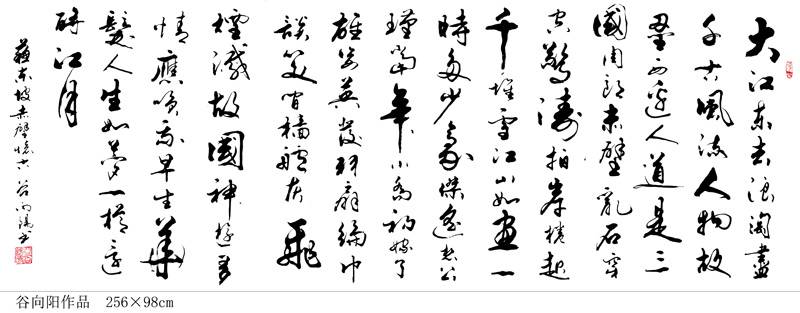 大江東去浪淘盡
千古風流人物故
壘西邊人道是三
國周郎赤壁亂石穿
空驚濤拍岸捲起
千堆雪江山如畫一
時多少豪傑遙想公
瑾當年小喬初嫁了
雄姿英發羽扇綸巾
談笑間檣艫灰飛
煙滅故國神遊多
情應笑我早生華
髮人生如夢一樽還
酹江月
蘇東坡赤壁懷古 谷向陽書
谷向阳作品 256×98cm